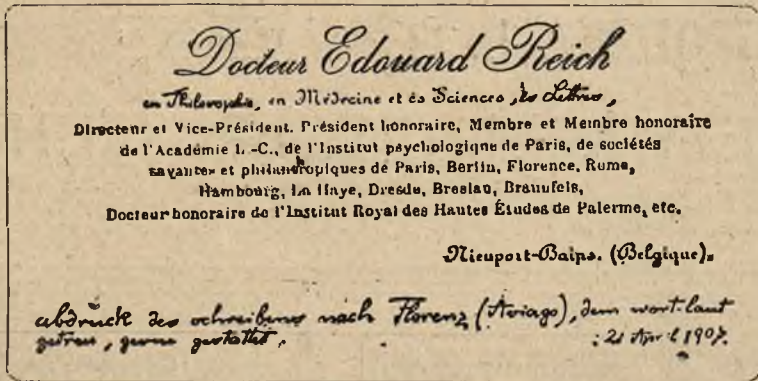 Docteur Edouard Reich
en Philosophie, en Médecine et ès Sciences, ès Lettres,
Directeur et Vice-Président. Président honoraire, Membre et Membre honoraire
de l'Académie L.-C., de l'Institut psychologique de Paris, de sociétés
savantes et philanthropiques de Paris, Berlin, Florence, Rome,
Hambourg, La Haye, Dresde, Breslau, Braunfels,
Docteur honoraire de l'Institut Royal des Hautes Études de Palerme, etc.
Nieuport-Bains. (Belgique).
abdruck des schreibens nach Florenz (Aviago), dem wort-laut
getreu, gerne gestattet.
: 21 April 1907.